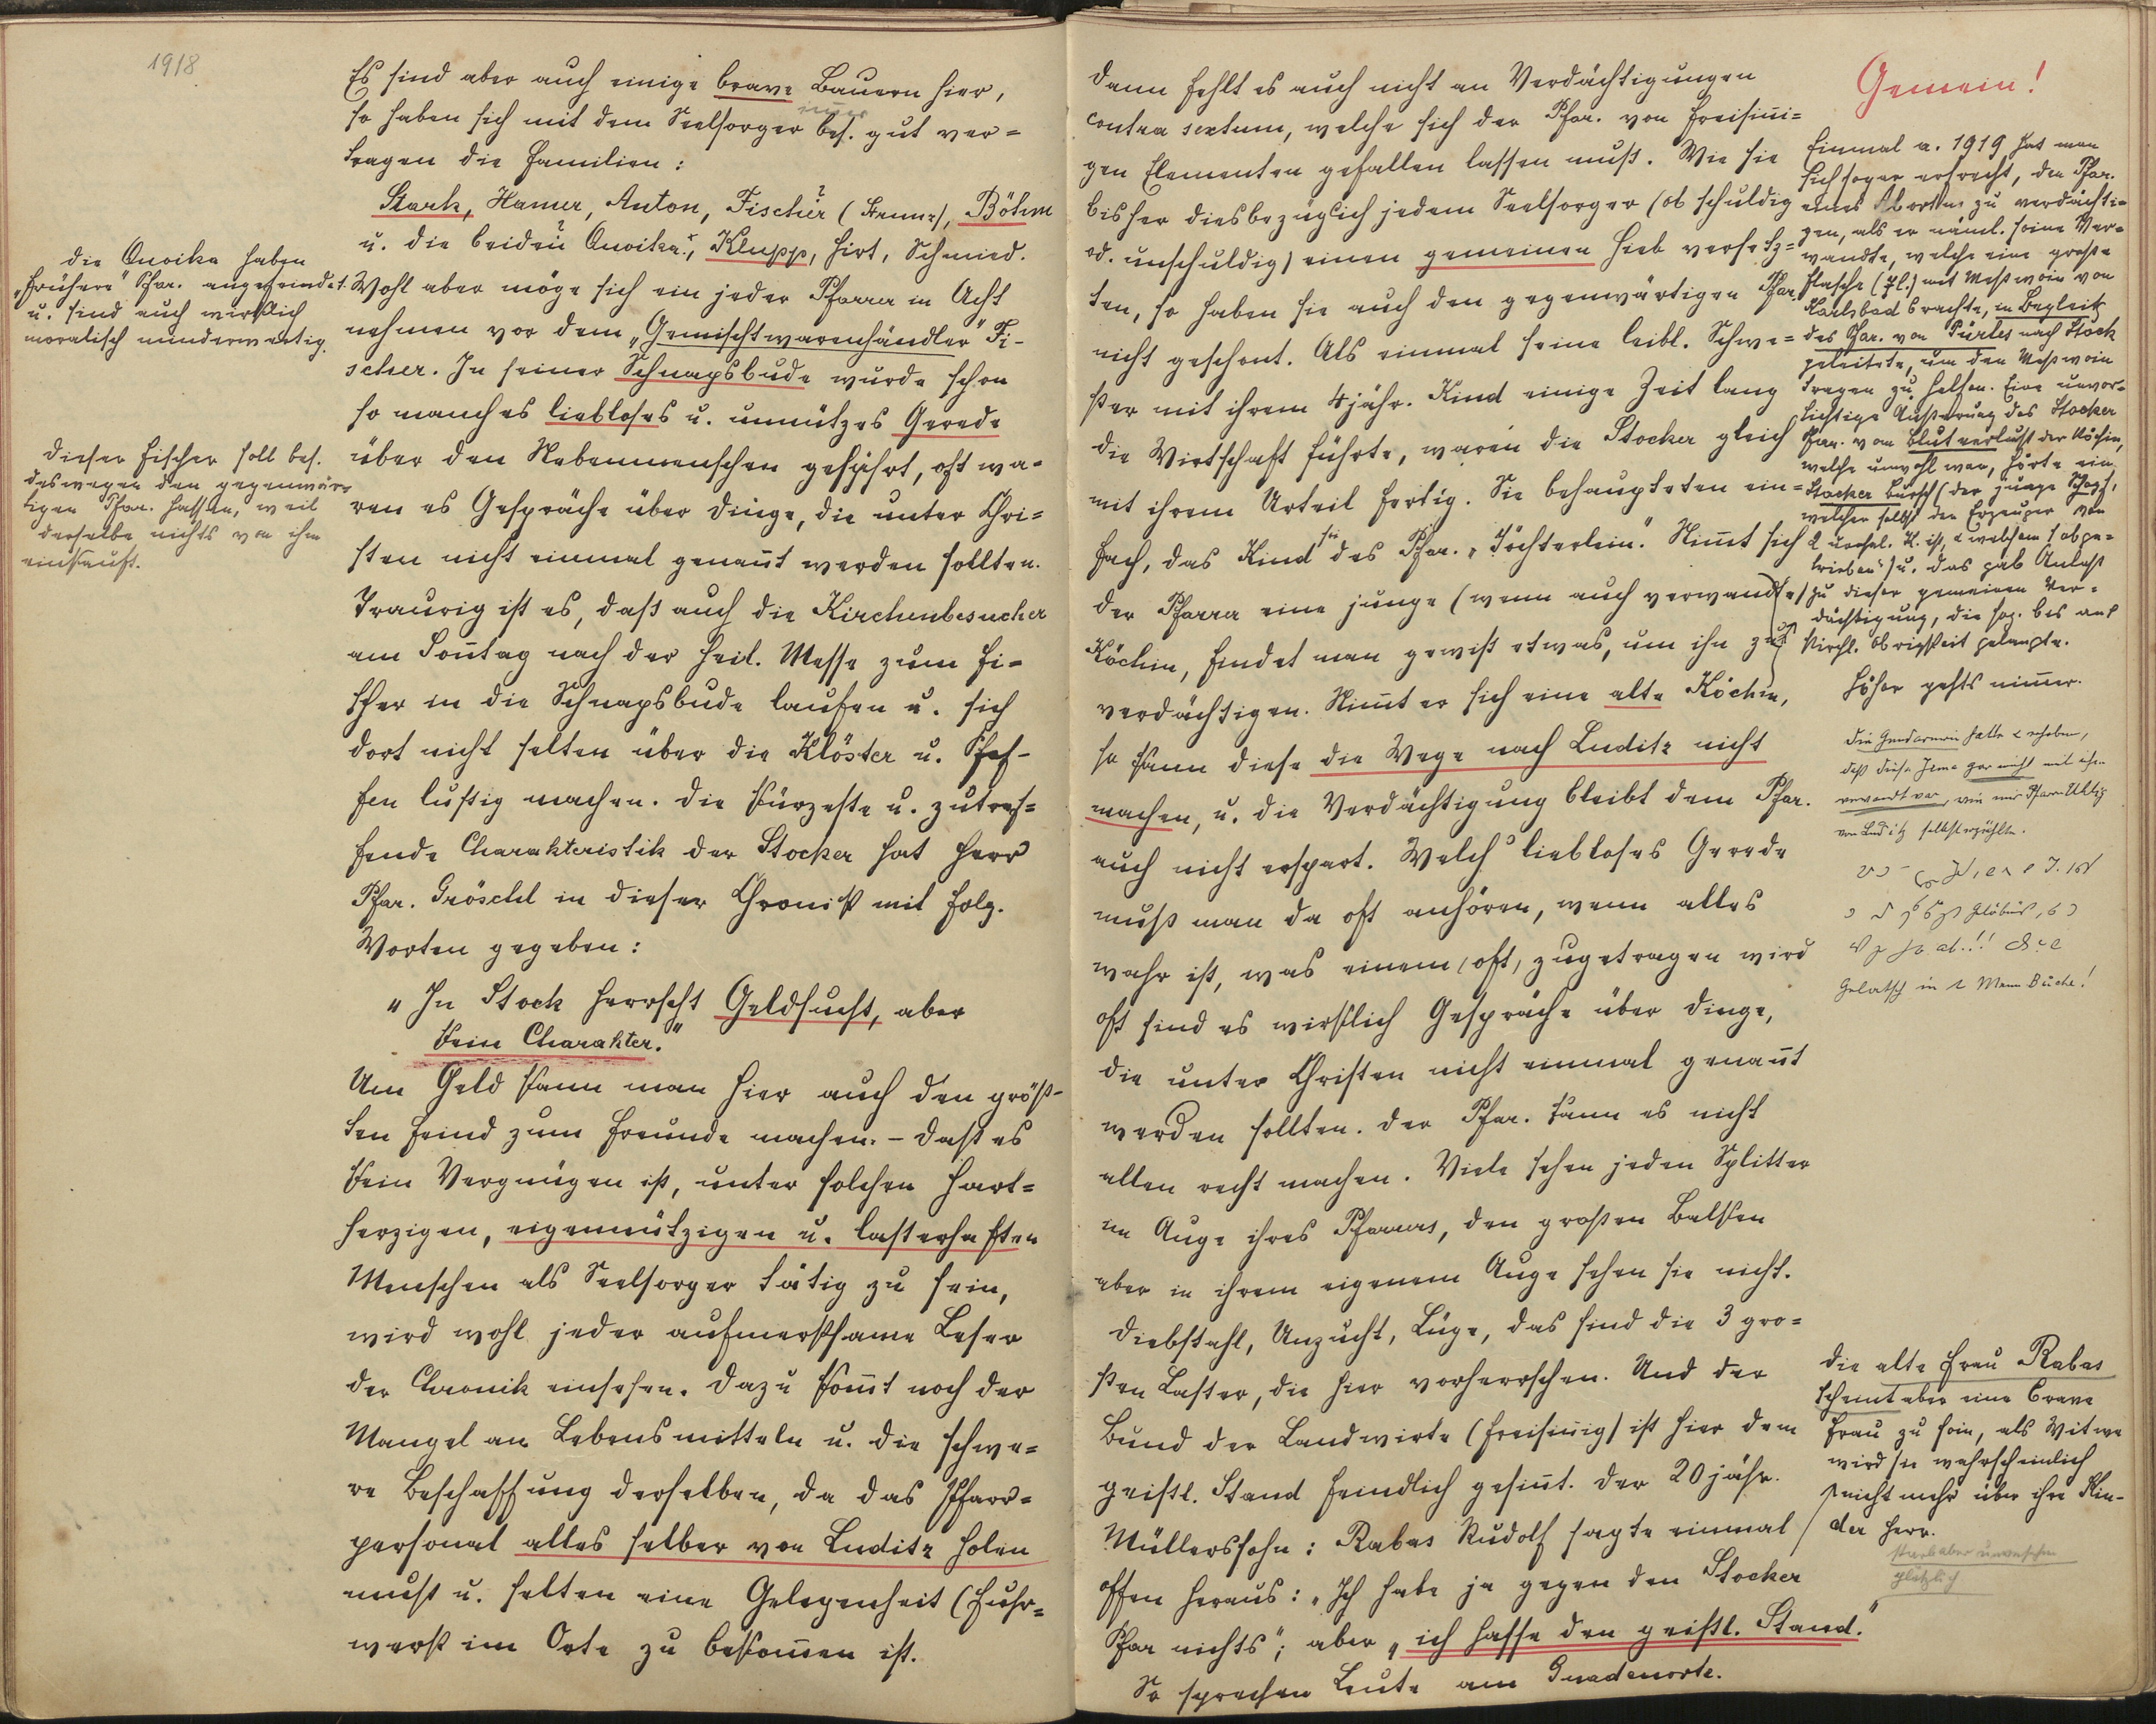 1918
Es sind aber auch einige brave Bauern hier,
so haben sich mit dem Seelsorger immer bes. gut ver=
tragen die Familien:
Stark, Hamer, Anton, Fischer (Stenne), Böhm
u. die beiden Quoika, Klupp, Hirt, Schmied.
die Quoika haben
"frühere" Pfar. angefeindet
u. sind auch wirklich
moralisch minderwertig.
Wohl aber möge sich ein jeder Pfarrer in Acht
nehmen vor dem „Gemischtwarenhändler" Fi-
scher. In seiner Schnapsbude wurde schon
so manches liebloses u. unnützes Gerede
über den Nebenmenschen geführt, oft wa-
ren es Gespräche über Dinge, die unter Chri=
sten nicht einmal genannt werden sollten.
dieser Fischer soll bes.
deswegen den gegenwär-
tigen Pfar. hassen, weil
derselbe nichts von ihm
einkauft.
Traurig ist es, daß auch die Kirchenbesucher
am Sonntag nach der heil. Messe zum Fi=
scher in die Schnapsbude laufen u. sich
dort nicht selten über die Klöster u. Pfaf-
fen lustig machen. Die kürzeste u. zutref=
fende Charakteristik der Stocker hat Herr
Pfar. Gröschl in dieser Chronik mit folg.
Worten gegeben:
„In Stock herrscht Geldsucht, aber
kein Charakter."
Um Geld kann man hier auch den größ-
ten Feind zum Freunde machen. – Daß es
kein Vergnügen ist, unter solchen hart=
herzigen, eigennützigen u. lasterhaften
Menschen als Seelsorger tätig zu sein,
wird wohl jeder aufmerksame Leser
der Chronik einsehen. Dazu kommt noch der
Mangel an Lebensmitteln u. die schwe=
re Beschaffung derselben, da das Pfarr=
personal alles selber von Luditz holen
muß u. selten eine Gelegenheit (Fuhr=
werk im Orte zu bekommen ist.
Dann fehlt es auch nicht an Verdächtigungen
contra sextum, welche sich der Pfar. von freisinni=
gen Elementen gefallen lassen muß. Wie sie
bisher diesbezüglich jedem Seelsorger (ob schuldig
od. unschuldig) einen gemeinen Hieb versetz=
ten, so haben sie auch den gegenwärtigen Pfar.
nicht geschont. Als einmal seine leibl. Schwe=
ster mit ihrem 4jähr. Kind einige Zeit lang
die Wirtschaft führte, waren die Stocker gleich
mit ihrem Urteil fertig. Sie behaupteten ein=
fach, das Kind sei des Pfar. „Töchterlein". Nimmt sich
der Pfarrer eine junge (wenn auch verwandte)
Köchin, findet man gewiß etwas, um ihn zu
verdächtigen. Nimmt er sich eine alte Köchin,
so kann diese die Wege nach Luditz nicht
machen, u. die Verdächtigung bleibt dem Pfar.
auch nicht erspart. Welch liebloses Gerede
muß man da oft anhören, wenn alles
wahr ist, was einem (oft) zugetragen wird
oft sind es wirklich Gespräche über Dinge,
die unter Christen nicht einmal genannt
werden sollten. Der Pfar. kann es nicht
allen recht machen. Viele sehen jeden Splitter
im Auge ihres Pfarrers, den großen Balken
aber in ihrem eigenem Auge sehen sie nicht.
Diebstahl, Unzucht, Lüge, das sind die 3 gro=
ßen Laster, die hier vorherrschen. Und der
Bund der Landwirte (freisinnig) ist hier dem
geistl. Stand feindlich gesinnt. Der 20jähr.
Müllerssohn: Rabas Rudolf sagte einmal
offen heraus: „Ich habe ja gegen den Stocker
Pfar nichts"; aber „ich hasse den geistl. Stand."
So sprechen Leute am Gnadenorte.
Gemein!
Einmal a. 1919 hat man
sich sogar erfrecht, den Pfar.
eines Abortus zu verdächti=
gen, als er näml. seine Ver=
wandte, welche eine große
Flasche (7l.) mit Meßwein von
Karlsbad brachte, in Begleit
des Pfar. von Pürles nach Stock
geleitete, um den Meßwein
tragen zu helfen. Eine unvor=
sichtige Äußerung des Stocker
Pfar. vom Blutverlust der Köchin,
welche unwohl war, hörte ein
Stocker Bursch (der junge
welcher selbst der Erzeuger von
2 unehel. K. ist,
trieben") u. das gab Anlaß
zu dieser gemeinen Ver=
dächtigung, die sog. bis auf
kirchl. Obrigkeit gelangte.
Höher gehts nimmer.
die Gendarmerie hatte erhoben,
daß diese Irma gar nicht mit ihm
verwandt war, wie mir Pfarr.
von Luditz selbst erzählte.
die alte Frau Rabas
scheint aber eine brave
Frau zu sein, als Witwe
wird sie wahrscheinlich
nicht mehr über ihre Kin-
der Herr.
starb aber
plötzlich